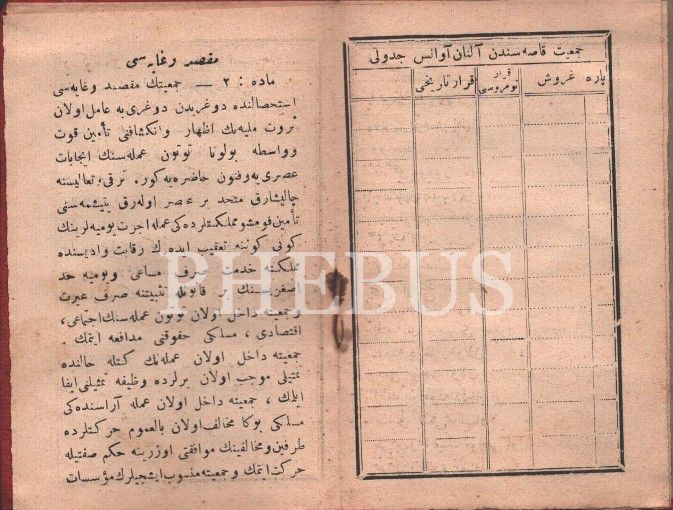 جمعیت قاصه سندن آلنان آوانس جدولی
پاره غروش قرار نومروسی قرار تاریخی
مقصد و غایه سی
ماده : ٢ — جمعیتك مقصد و غایه سی
استحصالنده دوغریدن دوغری یه عامل اولان
ثروت ملیه نك اظهار وانكشافنی تأمین قوت
وواسطه بولونا توتون عمله سنك ایجابات
عصری یه وفنون حاضره یه كور. ترقی وتعالیسنه
چالیشارق متحد بر عصر اوله رق یتیشمه سنی
تأمین قومشو مملكتلرده كی عمله اجرت یومیه لرینك
كونی كوننه تعقیب ایده رك رقابت وادیسنده
مملكته خدمت صرف مساعی ویومیه حد
اصغریسنك بر قانونله تثبیتنه صرف غیرت
وجمعیته داخل اولان توتون عمله سنك اجتماعی ،
اقتصادی ، مسلكی حقوقی مدافعه ایتمك .
جمعیته داخل اولان عمله نك كتله حالنده
تمثیلی موجب اولان یرلرده وظیفه تمثیلنی ایفا
ایلمك ، جمعیته داخل اولان عمله آراسنده كی
مسلكی بوكا مخالف اولان بالعموم حركتلرده
طرفین ومخالفینك موافقتی اوزرینه حكم صفتیله
حركت ایتمك وجمعیته منسوب ایشجیلرك مؤسسات
PHEBUS